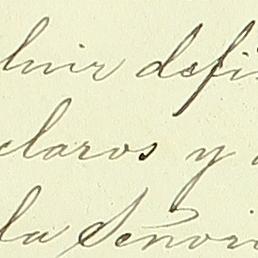 luir defi
claros y
la Señori